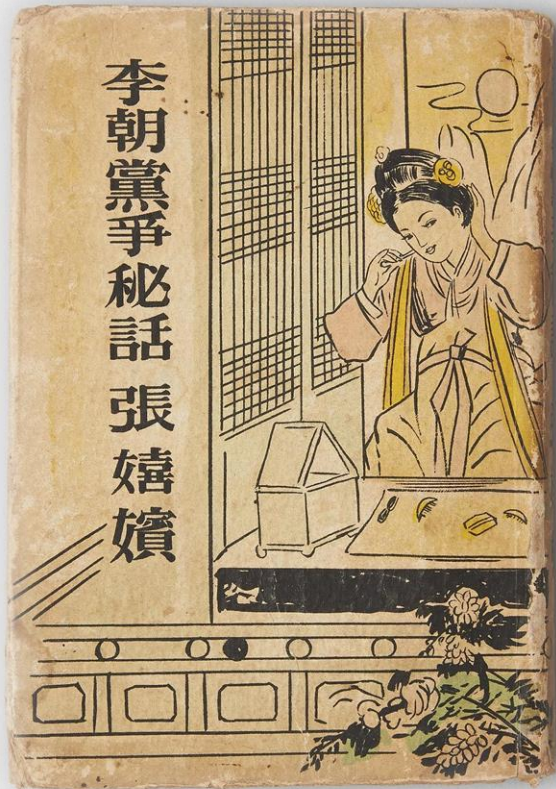 李朝黨爭秘話 張嬉嬪